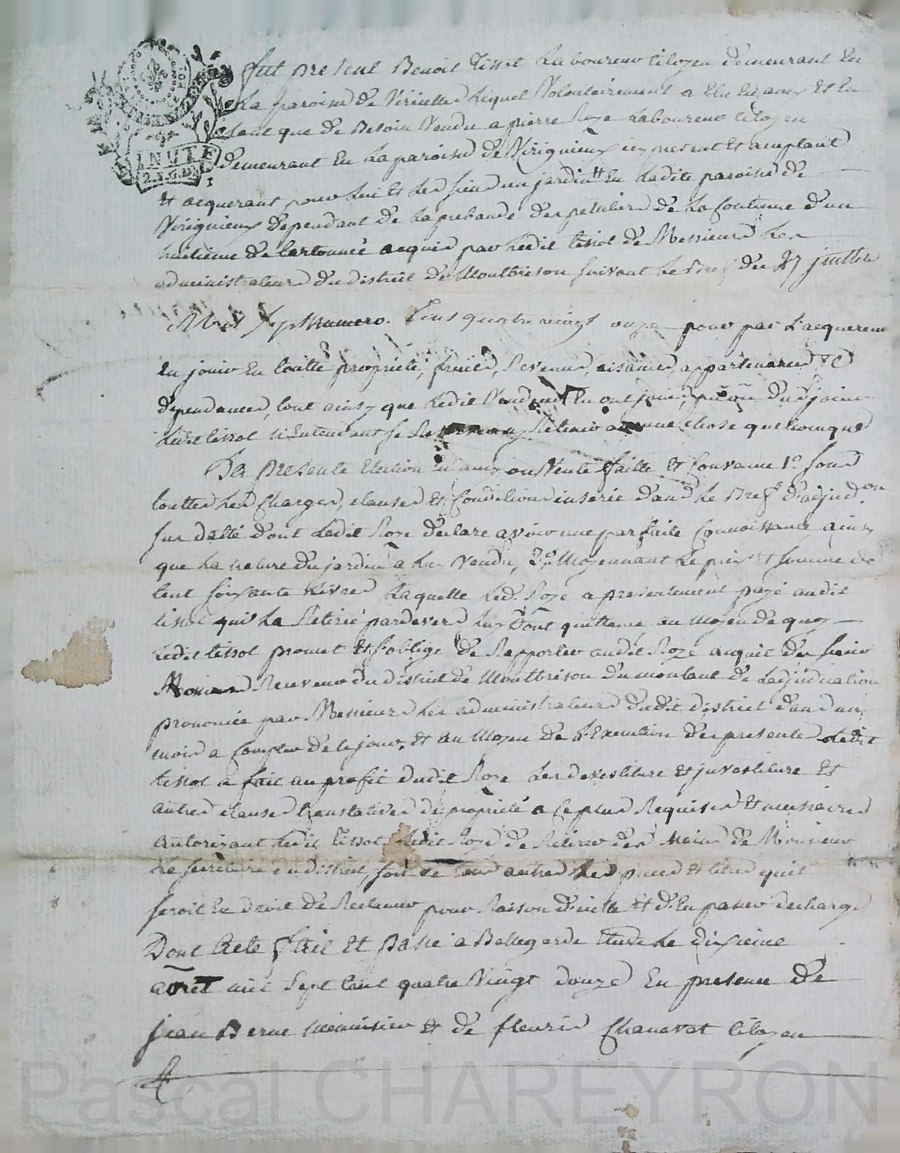 fut present Benoit Tissot Laboureur citoyen demeurant en
la paroisse de lequel Volontairement a et en
tant que de Besoin Vendu a pierre Roze Laboureur citoyen
INUTE
demeurant en la paroisse de Virigneux icy present et acceptant
et acquerant pour lui et les siens un jardin en ladite paroisse de
Virigneux dependant de la prebande des de la Contenue d'un
huitieme de Cartonnée acquis par ledit tissot de Messieurs les
administrateurs du district de Montbrison suivant le du 27 juillet
Mil sept Cens quatre vingt onze pour par l'acquereur
en jouir en toutte propriété, fruits, Revenus, aisances, appartenances &
dependances, tout ainsy que ledit Vendeur en out joui,
ledit tissot n'Entendant se Retenir aucune chose quelconque
La presente en amy ou Vente faitte et Convenue 1o. sous
touttes les Charges, clauses et Conditions inserée dans le d'adjudon
sus datté dont ledit Roze declare avoir une parfaite Connoissance ainsy
que la nature du jardin a luy Vendu, 2o. Moyennant le prix et somme de
Cent soixante livres laquelle led. Roze a presentement payé audit
tissot qui la Retiré pardevers luy Dont quittance au moyen de quoy
ledit tissot promet et s'oblige de Rapporter audit Roze acquit du sieur
Receveur du district de Montbrison du montant de L'adjudication
prononcée par Messieurs les administrateurs dudit district dans un
mois a Compter de ce jour, et au Moyen de l'Execution des presentes ledit
tissot a fait au profit dudit Roze les devestiture et investiture et
autres clauses translatives de propriété a ce plus Requises et necessaires
Autorisant ledit tissot ledit Roze de Retirer des Mains de Monsieur
le secretaire du district, soit de tous autres les pieces et titres qu'il
seroit en droit de Reclamer pour Raison d'icelle et d'En passer decharge
Dont Acte fait et passé a Bellegarde Etude le dixieme
aout mil sept cent quatre Vingt douze En presence de
jean Berne menuisier et de fleurie Chanavat citoyen
Pascal CHAREYRON